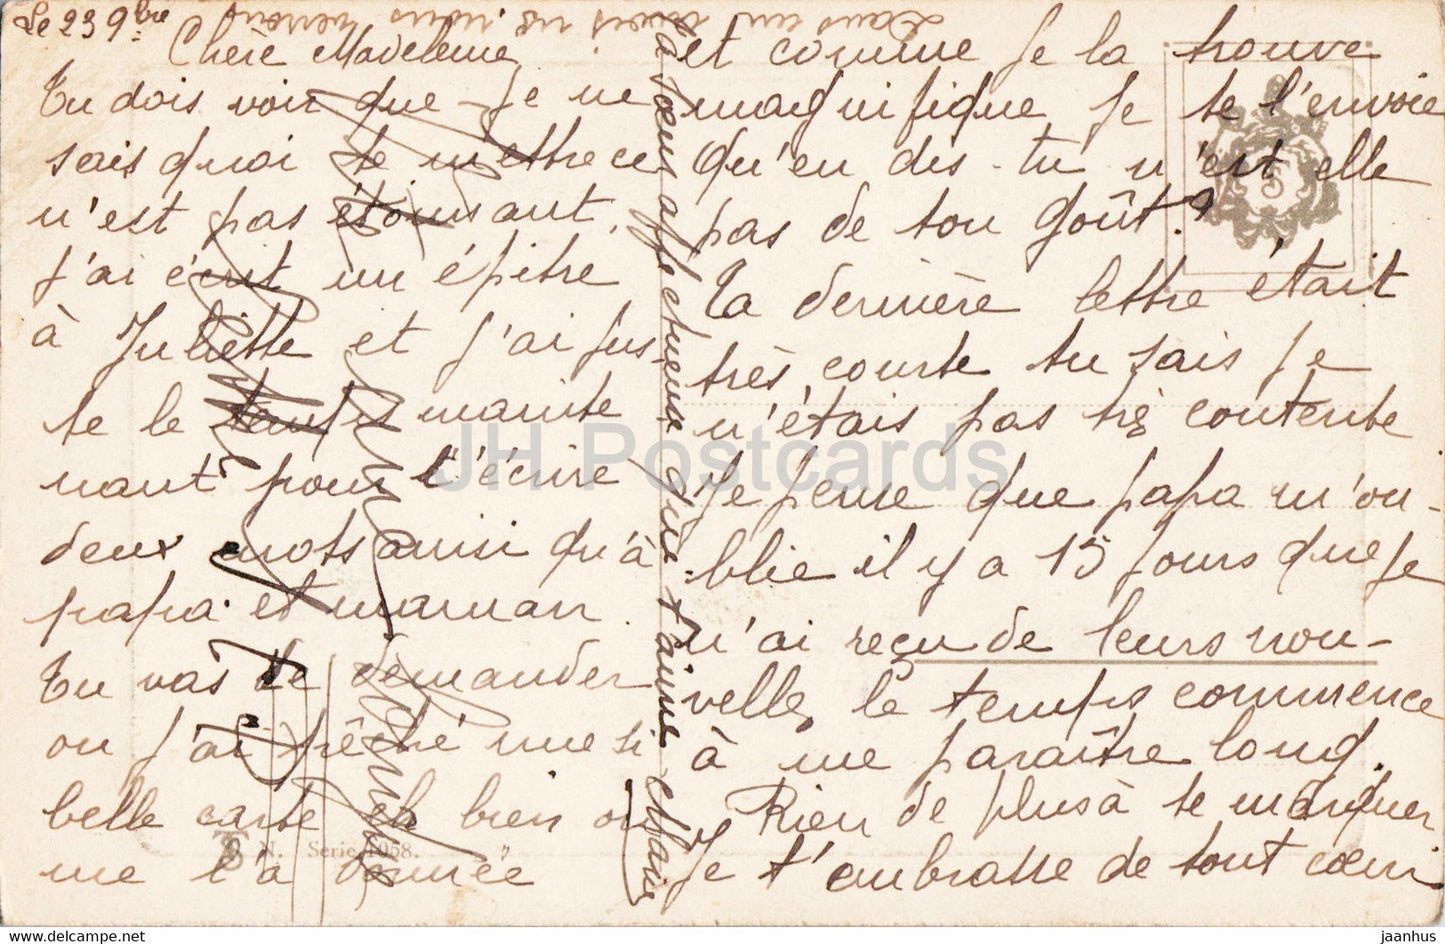 Le 23 9bre
Chère Madeleine
Tu dois voir que je ne
sais quoi te mettre ce
n'est pas étonnant,
j'ai écrit un épitre
à Juliette et j'ai jus-
te le temps mainte
nant pour t'écrire
deux mots ainsi qu'à
papa et maman.
Tu vas te demander
ou j'ai pêché une si
belle carte eh bien on
me l'a donnée
et comme je la trouve
magnifique je te l'envoie
qu'en dis-tu n'est elle
pas de ton goût ?
Ta dernière lettre était
très courte tu sais je
n'étais pas très contente
Je pense que papa m'ou-
blie il y a 15 jours que je
n'ai reçu de leurs nou-
velles, le temps commence
à me paraître long.
Rien de plus à te marquer
Je t'embrasse de tout cœur
Ta sœur affectueuse qui t'aime
Dans un mois nous nous verrons
N. Serie 1058.
JH Postcards
jaanhus-site
jaanhus